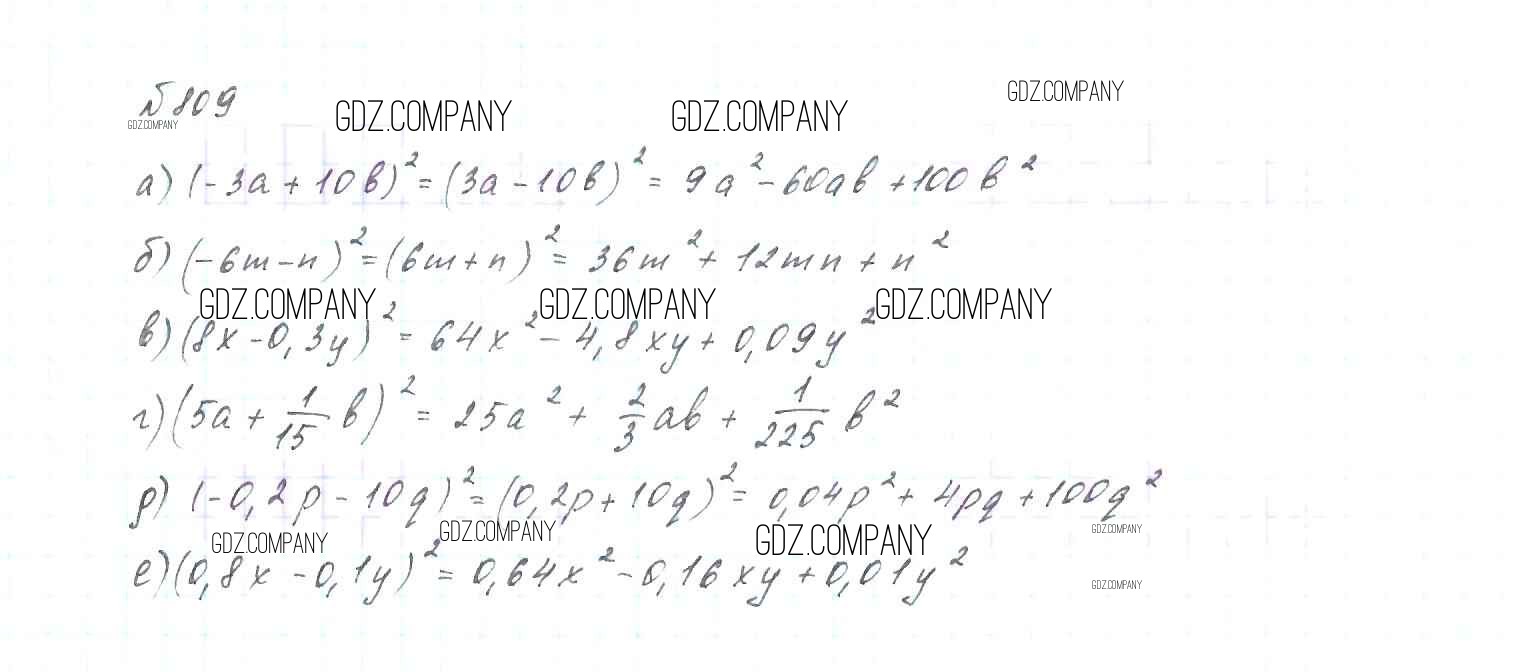 № 809
GDZ.COMPANY GDZ.COMPANY GDZ.COMPANY GDZ.COMPANY
а) (-3a + 10b)² = (3a - 10b)² = 9a² - 60ab + 100b²
б) (-6m - n)² = (6m + n)² = 36m² + 12mn + n²
GDZ.COMPANY GDZ.COMPANY GDZ.COMPANY
в) (8x - 0,3y)² = 64x² - 4,8xy + 0,09y²
г) (5a + 1/15 b)² = 25a² + 2/3 ab + 1/225 b²
р) (-0,2p - 10q)² = (0,2p + 10q)² = 0,04p² + 4pq + 100q²
GDZ.COMPANY GDZ.COMPANY GDZ.COMPANY GDZ.COMPANY
е) (0,8x - 0,1y)² = 0,64x² - 0,16xy + 0,01y²
GDZ.COMPANY